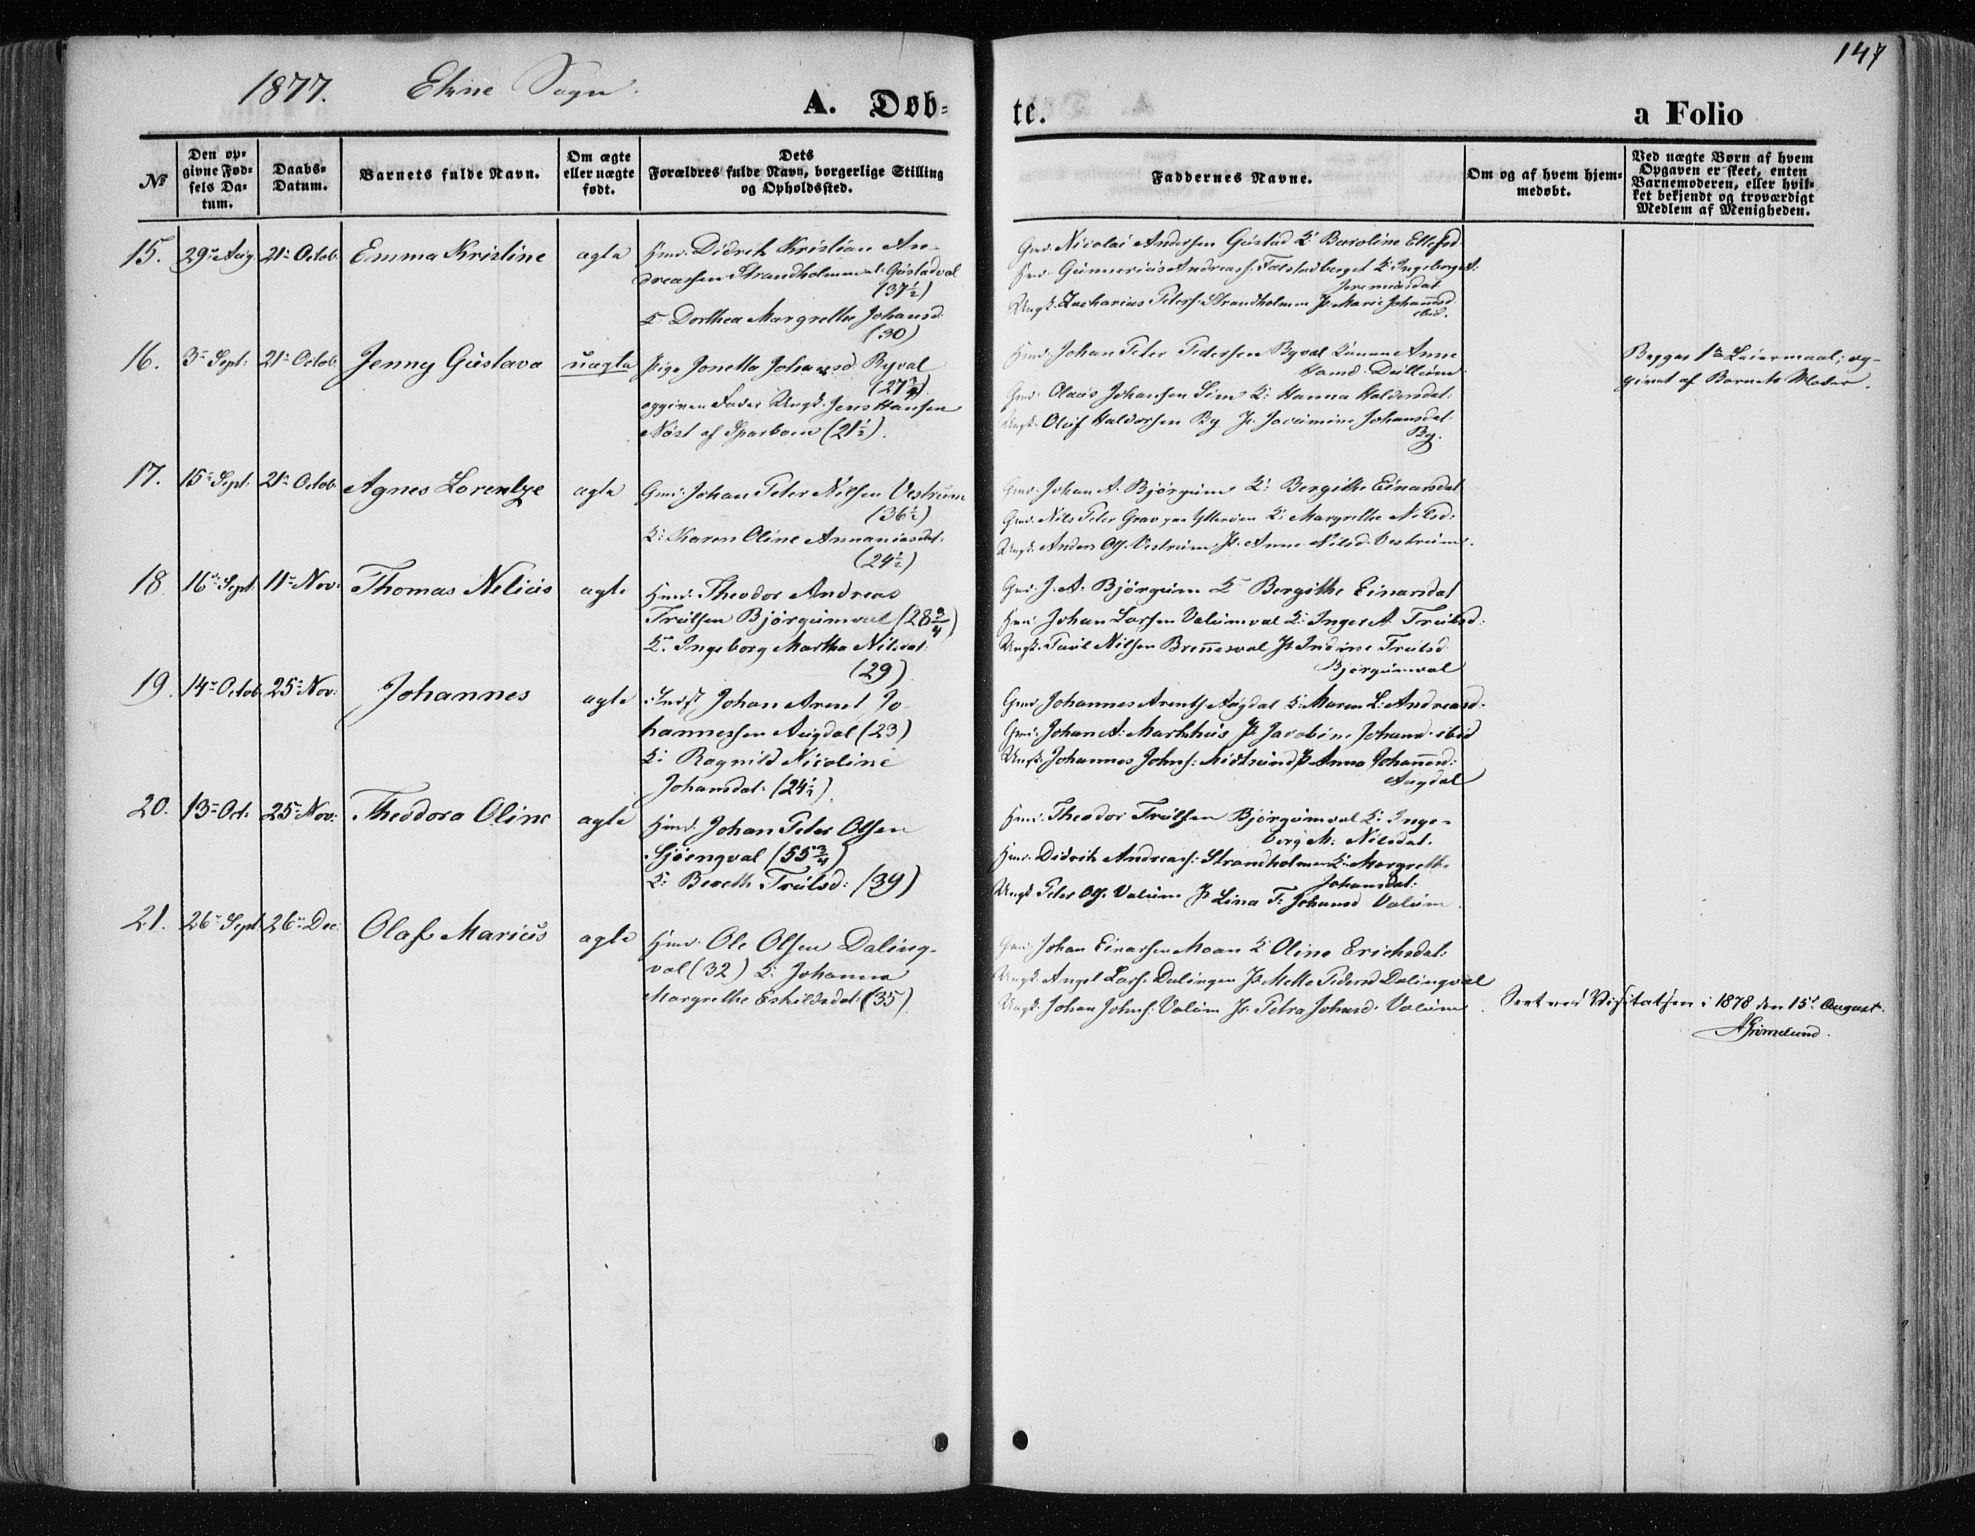 1877. Ekne Sogn.
A. Døb-
te.
a Folio
147
No
Den op-
givne Fød-
sels Da-
tum.
Daabs-
Datum.
Barnets fulde Navn.
Om ægte
eller uægte
født.
Dets
Forældres fulde Navn, borgerlige Stilling
og Opholdssted.
Faddernes Navne.
Om og af hvem hjem-
medøbt.
Ved uægte Børn af hvem
Opgaven er skeet, enten
Barnemoderen, eller hvil-
ket bekjendt og troværdigt
Medlem af Menigheden.
15. 29de Aug. 21de Octob. Emma Kristine ægte Hmd. Didrik Kristian An-
dreassen Strandholmen al. Gustadval
(37½)
K. Dorthea Margrethe Johansd.
(30)
Gmd. Nicolai Andersen Gustad K. Baroline Ellefsd.
Hmd. Gunnerius Andreass. Falstadberget K. Ingeborg A.
Jeremiasdat.
Ungk. Zacharias Peters. Strandholmen P. Marie Johannsd.
ibid.
16. 3de Sept. 21de Octob. Jenny Gustava uægte Pige Jonetta Johansd. Byval
(27¾)
opgiven Fader Ungk. Jens Hansen
Nøst af Sparboen (21½).
Hmd. Johan Peter Pedersen Byval Konen Anne
Hansd. Dullum
Gmd. Olaus Johansen Sem K. Hanna Haldorsdat.
Ungk. Oluf Haldorsen By P. Jocumine Johansdat.
By.
Begges 1ste Leiermaal; op-
givet af Barnets Moder.
17. 15de Sept. 21de Octob. Agnes Lorentze ægte Gmd. Johan Peter Nilsen Vestrum
(36½)
K. Karen Oline Annaniasdat.
(24½)
Gmd. Johan A. Bjørgum K. Bergithe Einarsdat.
Gmd. Nils Peter Grav paa Ytterøen K. Margrethe Nilsd.
Ungk. Anders Ols. Vestrum P. Anne Nilsd. Vestrum.
18. 16de Sept. 11te Nov. Thomas Nelius ægte Hmd. Theodor Andreas
Trulsen Bjørgumval (28¾)
K. Ingeborg Martha Nilsdat.
(29)
Gmd. J. A. Bjørgum K. Bergithe Einarsdat
Hmd. Johan Larsen Valumval K. Inger A. Trulsd.
Ungk. Paul Nilsen Brennesval P. Indine Trulsd.
Bjørgumval
19. 14de Octob. 25de Nov. Johannes ægte Indst. Johan Arent Jo-
hannessen Augdal (23)
K. Ragnild Nicoline
Johansdat. (24½)
Gmd. Johannes Arents. Augdal K. Maren L. Andreasd.
Gmd. Johan A. Markhus P. Jacobine Johansd. ibid
Ungk. Johannes Johns. Midtsund P. Anna Johannesd.
Augdal
20. 13de Oct. 25de Nov. Theodora Oline ægte Hmd. Johan Peter Olsen
Sjøengval (55¾)
K. Bereth Trulsd. (39)
Hmd. Theodor Trulsen Bjørgumval K. Inge-
borg M. Nilsdat.
Hmd. Didrik Andreass. Strandholmen K. Margrethe
Johansdat.
Ungk. Peter Ols. Valum P. Lina F. Johansd. Valum.
21. 26de Sept. 26de Dec. Olaf Marius ægte Hmd. Ole Olsen Daling-
val (32) K. Johanna
Margrethe Eskildsdat. (35)
Gmd. Johan Einarsen Moan K. Oline Erichsdat.
Ungk. Angel Lars. Dalingen P. Mette Pedersd. Dalingval
Ungk. Johan Johns. Valum P. Petra Johansd. Valum.
Seet ved Visitatsen i 1878 den 15d August.
AGrimelund.